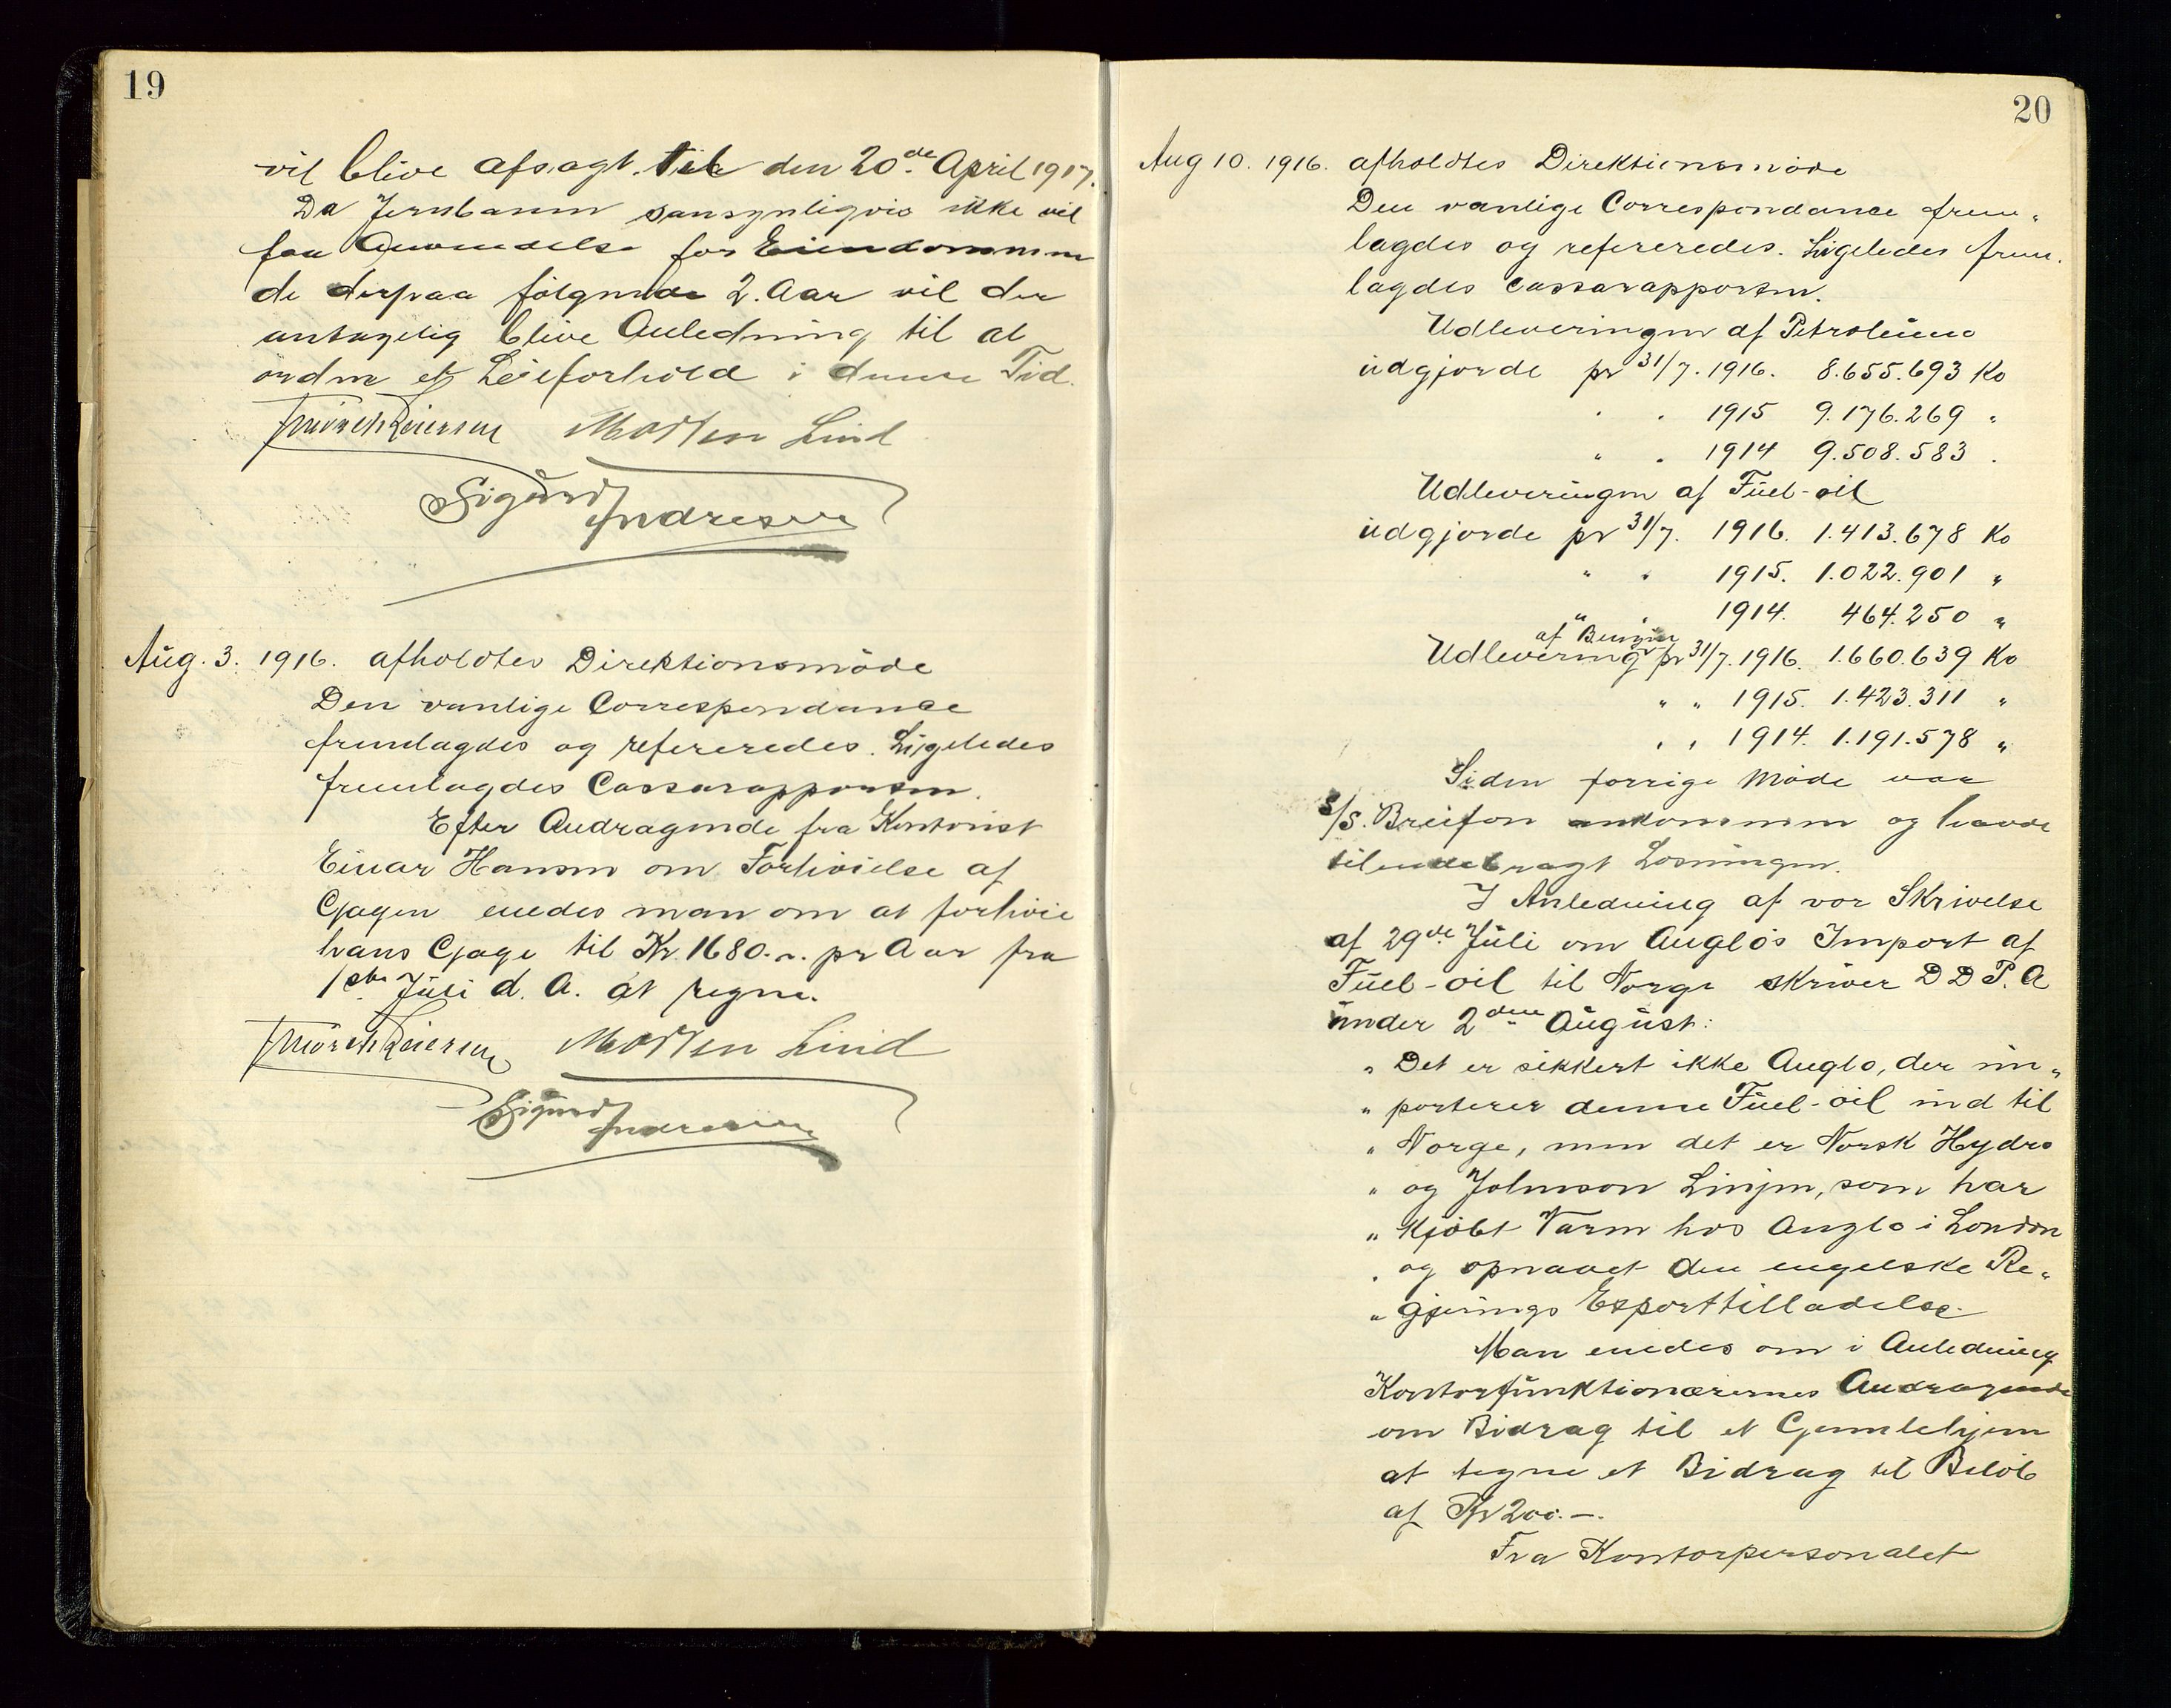 19
vil blive afsagt til den 20de April 1917.
Da Jernbanen sansynligvis ikke vil
faa Anvendelse for Eiendommen
de derpaa følgende 2. Aar vil der
antagelig blive Anledning til at
ordne et Leieforhold i denne Tid.
Mørch Reiersen Morten Lind
Sigurd Andresen
Aug. 3. 1916. afholdtes Direktionsmöde
Den vanlige Correspondance
fremlagdes og refereredes. Ligeledes
fremlagdes Cassarapporten.
Efter Andragende fra Kontorist
Einar Hansen om Forhöielse af
Gagen enedes man om at forhöie
hans Gage til Kr. 1680.-. pr Aar fra
1ste Juli d. A. at regne.
Mørch Reiersen Morten Lind
Sigurd Andresen
20
Aug 10. 1916. afholdtes Direktionsmöde
Den vanlige Correspondance frem-
lagdes og refereredes. Ligeledes frem-
lagdes Cassarapporten.
Udleveringen af Petroleum
udgjorde pr 31/7. 1916. 8.655.693 Ko
" " 1915 9.176.269 "
" " 1914 9.508.583 "
Udleveringen af Fuel-oil
udgjorde pr 31/7. 1916. 1.413.678 Ko
" " 1915. 1.022.901 "
" " 1914. 464.250 "
af Benzin
Udlevering pr 31/7. 1916. 1.660.639 Ko
" " 1915. 1.423.311 "
" " 1914. 1.191.578 "
Siden forrige Möde var
S/S. Breifon ankommen og havde
tilendebragt Losningen.
I Anledning af vor Skrivelse
af 29de Juli om Anglos Import af
Fuel-oil til Norge skriver D D P. A
under 2den August:
" Det er sikkert ikke Anglo, der im-
" porterer denne Fuel-oil ind til
" Norge, men det er Norsk Hydro
" og Johnson Linjen, som har
" kjöbt Varen hos Anglo i London
" og opnaaet den engelske Re-
" gjerings Exporttilladelse.
Man enedes om i Anledning
Kontorfunktionærernes Andragende
om Bidrag til et Gamlehjem
at tegne et Bidrag til Belöb
af Kr 200.-.
Fra Kontorpersonalet